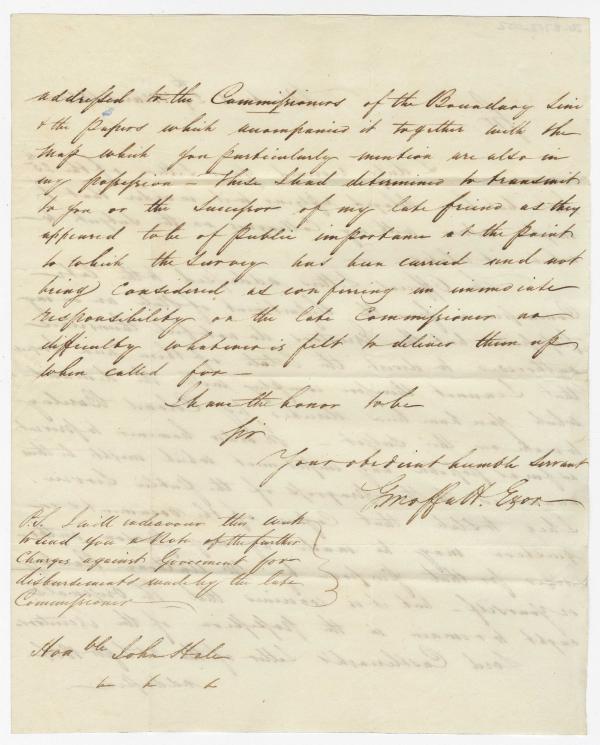 addressed to the Commissioners of the Boundary Line
& the Papers which accompanied it together with the
Map which you particularly mention are also in
my possession — these I had determined to transmit
to you or the Successor of my late friend as they
appeared to be of Public importance at the point
to which the Survey has been carried and not
being considered as conferring an immediate
responsibility on the late Commissioner no
difficulty whatever is felt to deliver them up
when called for —
I have the honor to be
Sir
Your obedient humble Servant
G Moffatt. Exor.
P.S. I will endeavour this week
to send you a Note of the further
Charges against Goverment for
disbursements made by the late
Commissioner
Hon ble John Hale